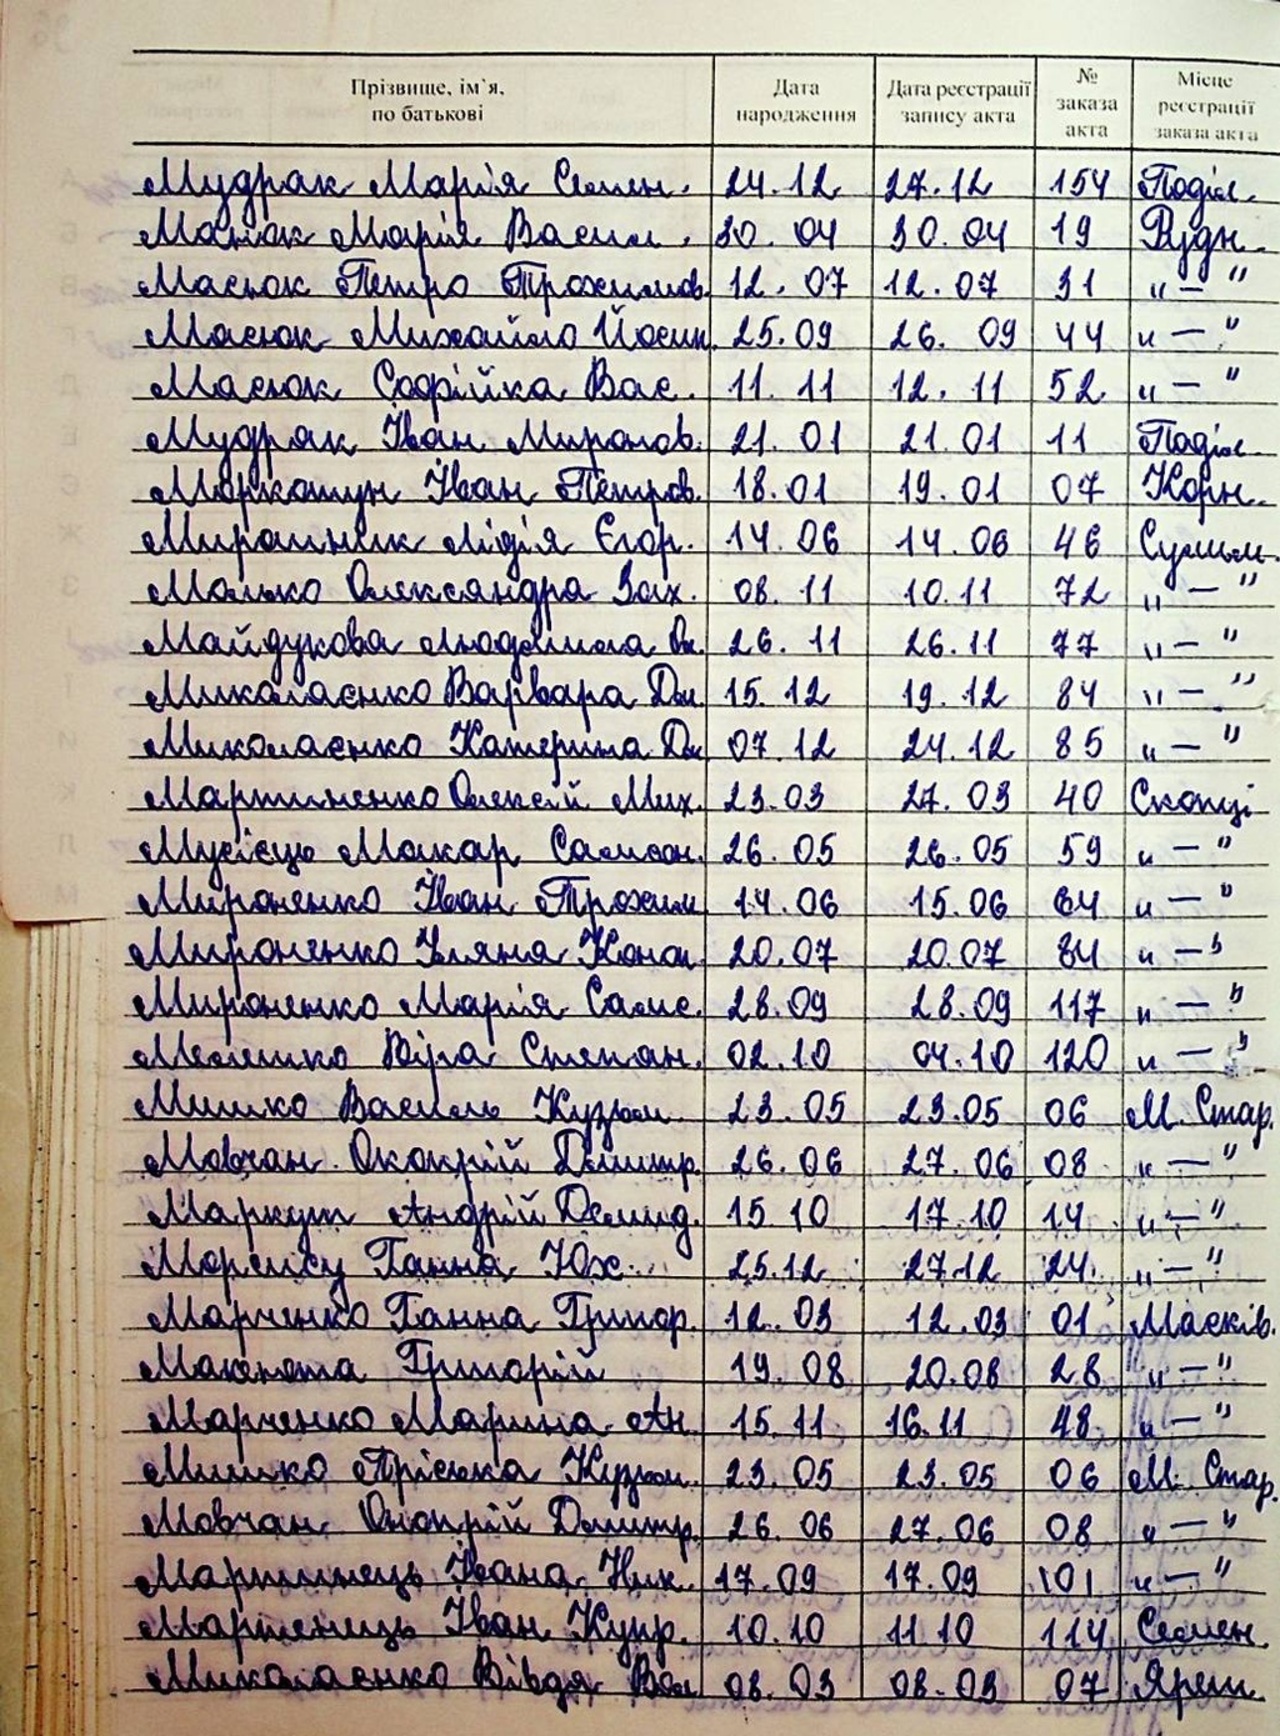 Прізвище, ім`я, по батькові Дата народження Дата реєстрації запису акта № заказа акта Місце реєстрації заказа акта
Мудрак Марія Семен. 24.12 27.12 154 Поділ.
Масюк Марія Васил. 30.04 30.04 19 Рудн.
Масюк Петро Трохимов. 12.07 12.07 31 "—"
Масюк Михайло Йосип. 25.09 26.09 44 "—"
Масюк Софійка Вас. 11.11 12.11 52 "—"
Мудрак Іван Миронов. 21.01 21.01 11 Поділ.
Моркотун Іван Петров. 18.01 19.01 07 Корн.
Мирошник Лідія Єгор. 14.06 14.06 46 Сулим.
Малько Олександра Зах. 08.11 10.11 72 "—"
Майдукова Людмила Ол. 26.11 26.11 77 "—"
Миколаєнко Варвара Дм. 15.12 19.12 84 "—"
Миколаєнко Катерина Дм. 07.12 24.12 85 "—"
Мартиненко Олексій Мих. 23.03 27.03 40 Скопці
Мусієць Макар Самсон. 26.05 26.05 59 "—"
Мироненко Іван Трохим. 14.06 15.06 64 "—"
Мироненко Уляна Конон. 20.07 20.07 84 "—"
Мироненко Марія Самс. 28.09 28.09 117 "—"
Віра Степан. 02.10 04.10 120 "—"
Мишко Василь Кузьм. 23.05 23.05 06 М. Стар.
Мовчан Онопрій Дмитр. 26.06 27.06 08 "—"
Маркут Андрій Демид. 15.10 17.10 14 "—"
Ганна Юх. 25.12 27.12 24 "—"
Марченко Ганна Григор. 12.03 12.03 01 Масків.
Григорій 19.08 20.08 28 "—"
Марченко Марина Ан. 15.11 16.11 48 "—"
Мишко Пріська Кузьм. 23.05 23.05 06 М. Стар.
Мовчан Онопрій Дмитр. 26.06 27.06 08 "—"
Мартинець Івана Ник. 17.09 17.09 101 "—"
Мартенець Іван Купр. 10.10 11.10 114 Семен.
Миколаєнко Вівдя 08.03 08.03 07 Яреш.